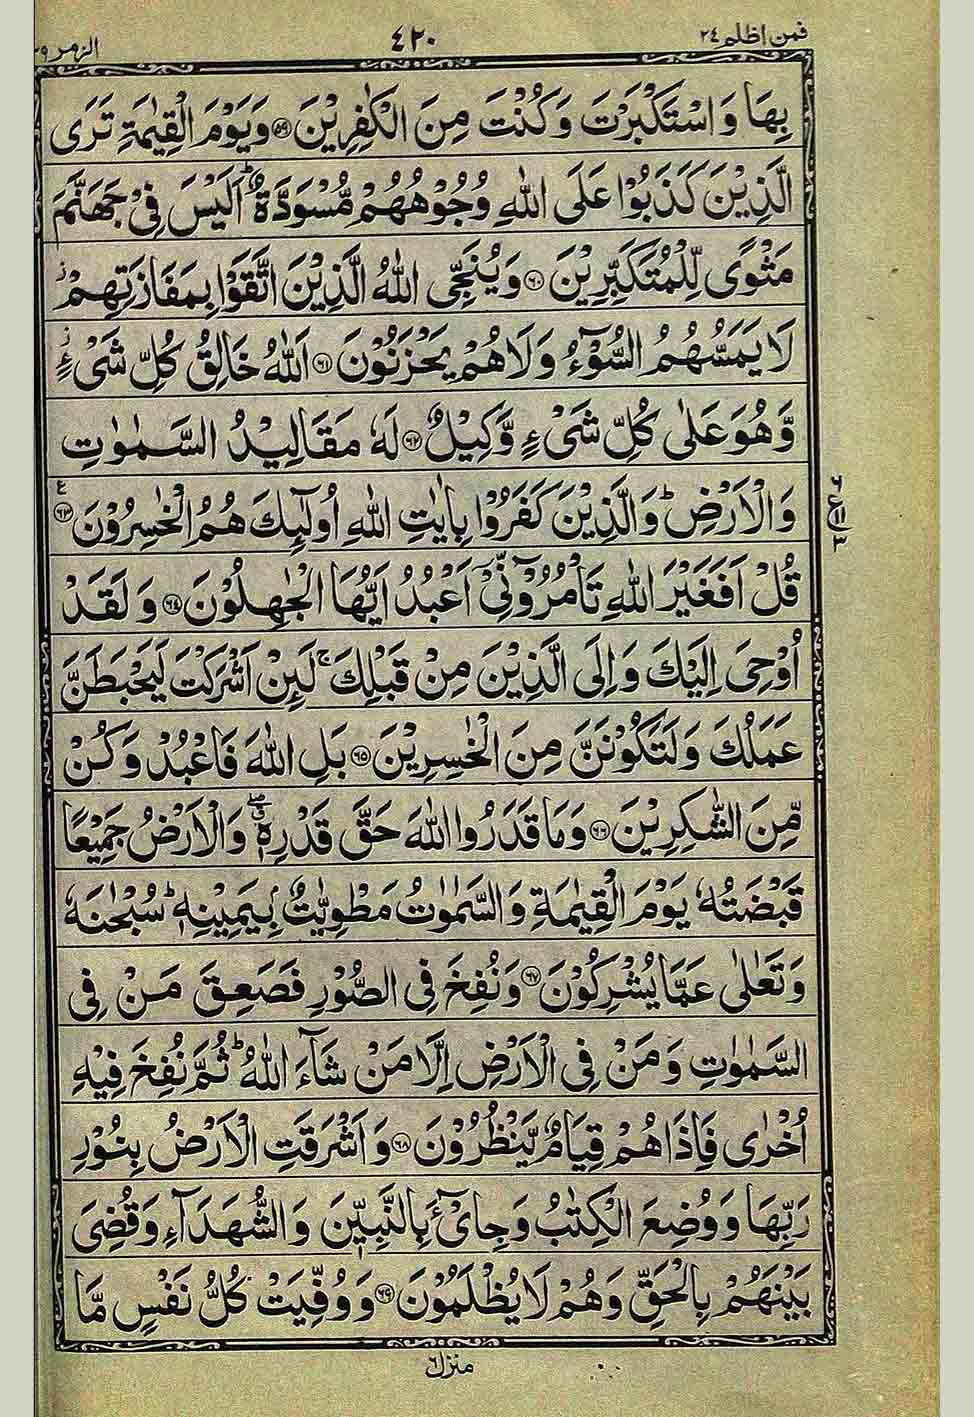 فمن اظلم ٢٤ ٤٢٠ الزمر ٣٩
بِهَا وَاسْتَكْبَرْتَ وَكُنْتَ مِنَ الْكٰفِرِيْنَ ۝٥٩ وَيَوْمَ الْقِيٰمَةِ تَرَى
الَّذِيْنَ كَذَبُوْا عَلَى اللّٰهِ وُجُوْهُهُمْ مُّسْوَدَّةٌ ؕ اَلَيْسَ فِيْ جَهَنَّمَ
مَثْوًى لِّلْمُتَكَبِّرِيْنَ ۝٦٠ وَيُنَجِّي اللّٰهُ الَّذِيْنَ اتَّقَوْا بِمَفَازَتِهِمْ ز
لَا يَمَسُّهُمُ السُّوْٓءُ وَلَا هُمْ يَحْزَنُوْنَ ۝٦١ اَللّٰهُ خَالِقُ كُلِّ شَيْءٍ ز
وَّهُوَ عَلٰى كُلِّ شَيْءٍ وَّكِيْلٌ ۝٦٢ لَهٗ مَقَالِيْدُ السَّمٰوٰتِ
وَالْاَرْضِ ؕ وَالَّذِيْنَ كَفَرُوْا بِاٰيٰتِ اللّٰهِ اُولٰٓئِكَ هُمُ الْخٰسِرُوْنَ ۝٦٣ ع
قُلْ اَفَغَيْرَ اللّٰهِ تَاْمُرُوْٓنِّيْٓ اَعْبُدُ اَيُّهَا الْجٰهِلُوْنَ ۝٦٤ وَلَقَدْ
اُوْحِيَ اِلَيْكَ وَاِلَى الَّذِيْنَ مِنْ قَبْلِكَ ۚ لَئِنْ اَشْرَكْتَ لَيَحْبَطَنَّ
عَمَلُكَ وَلَتَكُوْنَنَّ مِنَ الْخٰسِرِيْنَ ۝٦٥ بَلِ اللّٰهَ فَاعْبُدْ وَكُنْ
مِّنَ الشّٰكِرِيْنَ ۝٦٦ وَمَا قَدَرُوا اللّٰهَ حَقَّ قَدْرِهٖ ۖ وَالْاَرْضُ جَمِيْعًا
قَبْضَتُهٗ يَوْمَ الْقِيٰمَةِ وَالسَّمٰوٰتُ مَطْوِيّٰتٌۢ بِيَمِيْنِهٖ ؕ سُبْحٰنَهٗ
وَتَعٰلٰى عَمَّا يُشْرِكُوْنَ ۝٦٧ وَنُفِخَ فِي الصُّوْرِ فَصَعِقَ مَنْ فِي
السَّمٰوٰتِ وَمَنْ فِي الْاَرْضِ اِلَّا مَنْ شَآءَ اللّٰهُ ؕ ثُمَّ نُفِخَ فِيْهِ
اُخْرٰى فَاِذَا هُمْ قِيَامٌ يَّنْظُرُوْنَ ۝٦٨ وَاَشْرَقَتِ الْاَرْضُ بِنُوْرِ
رَبِّهَا وَوُضِعَ الْكِتٰبُ وَجِايْٓءَ بِالنَّبِيّٖنَ وَالشُّهَدَآءِ وَقُضِيَ
بَيْنَهُمْ بِالْحَقِّ وَهُمْ لَا يُظْلَمُوْنَ ۝٦٩ وَوُفِّيَتْ كُلُّ نَفْسٍ مَّا
منزل ٦